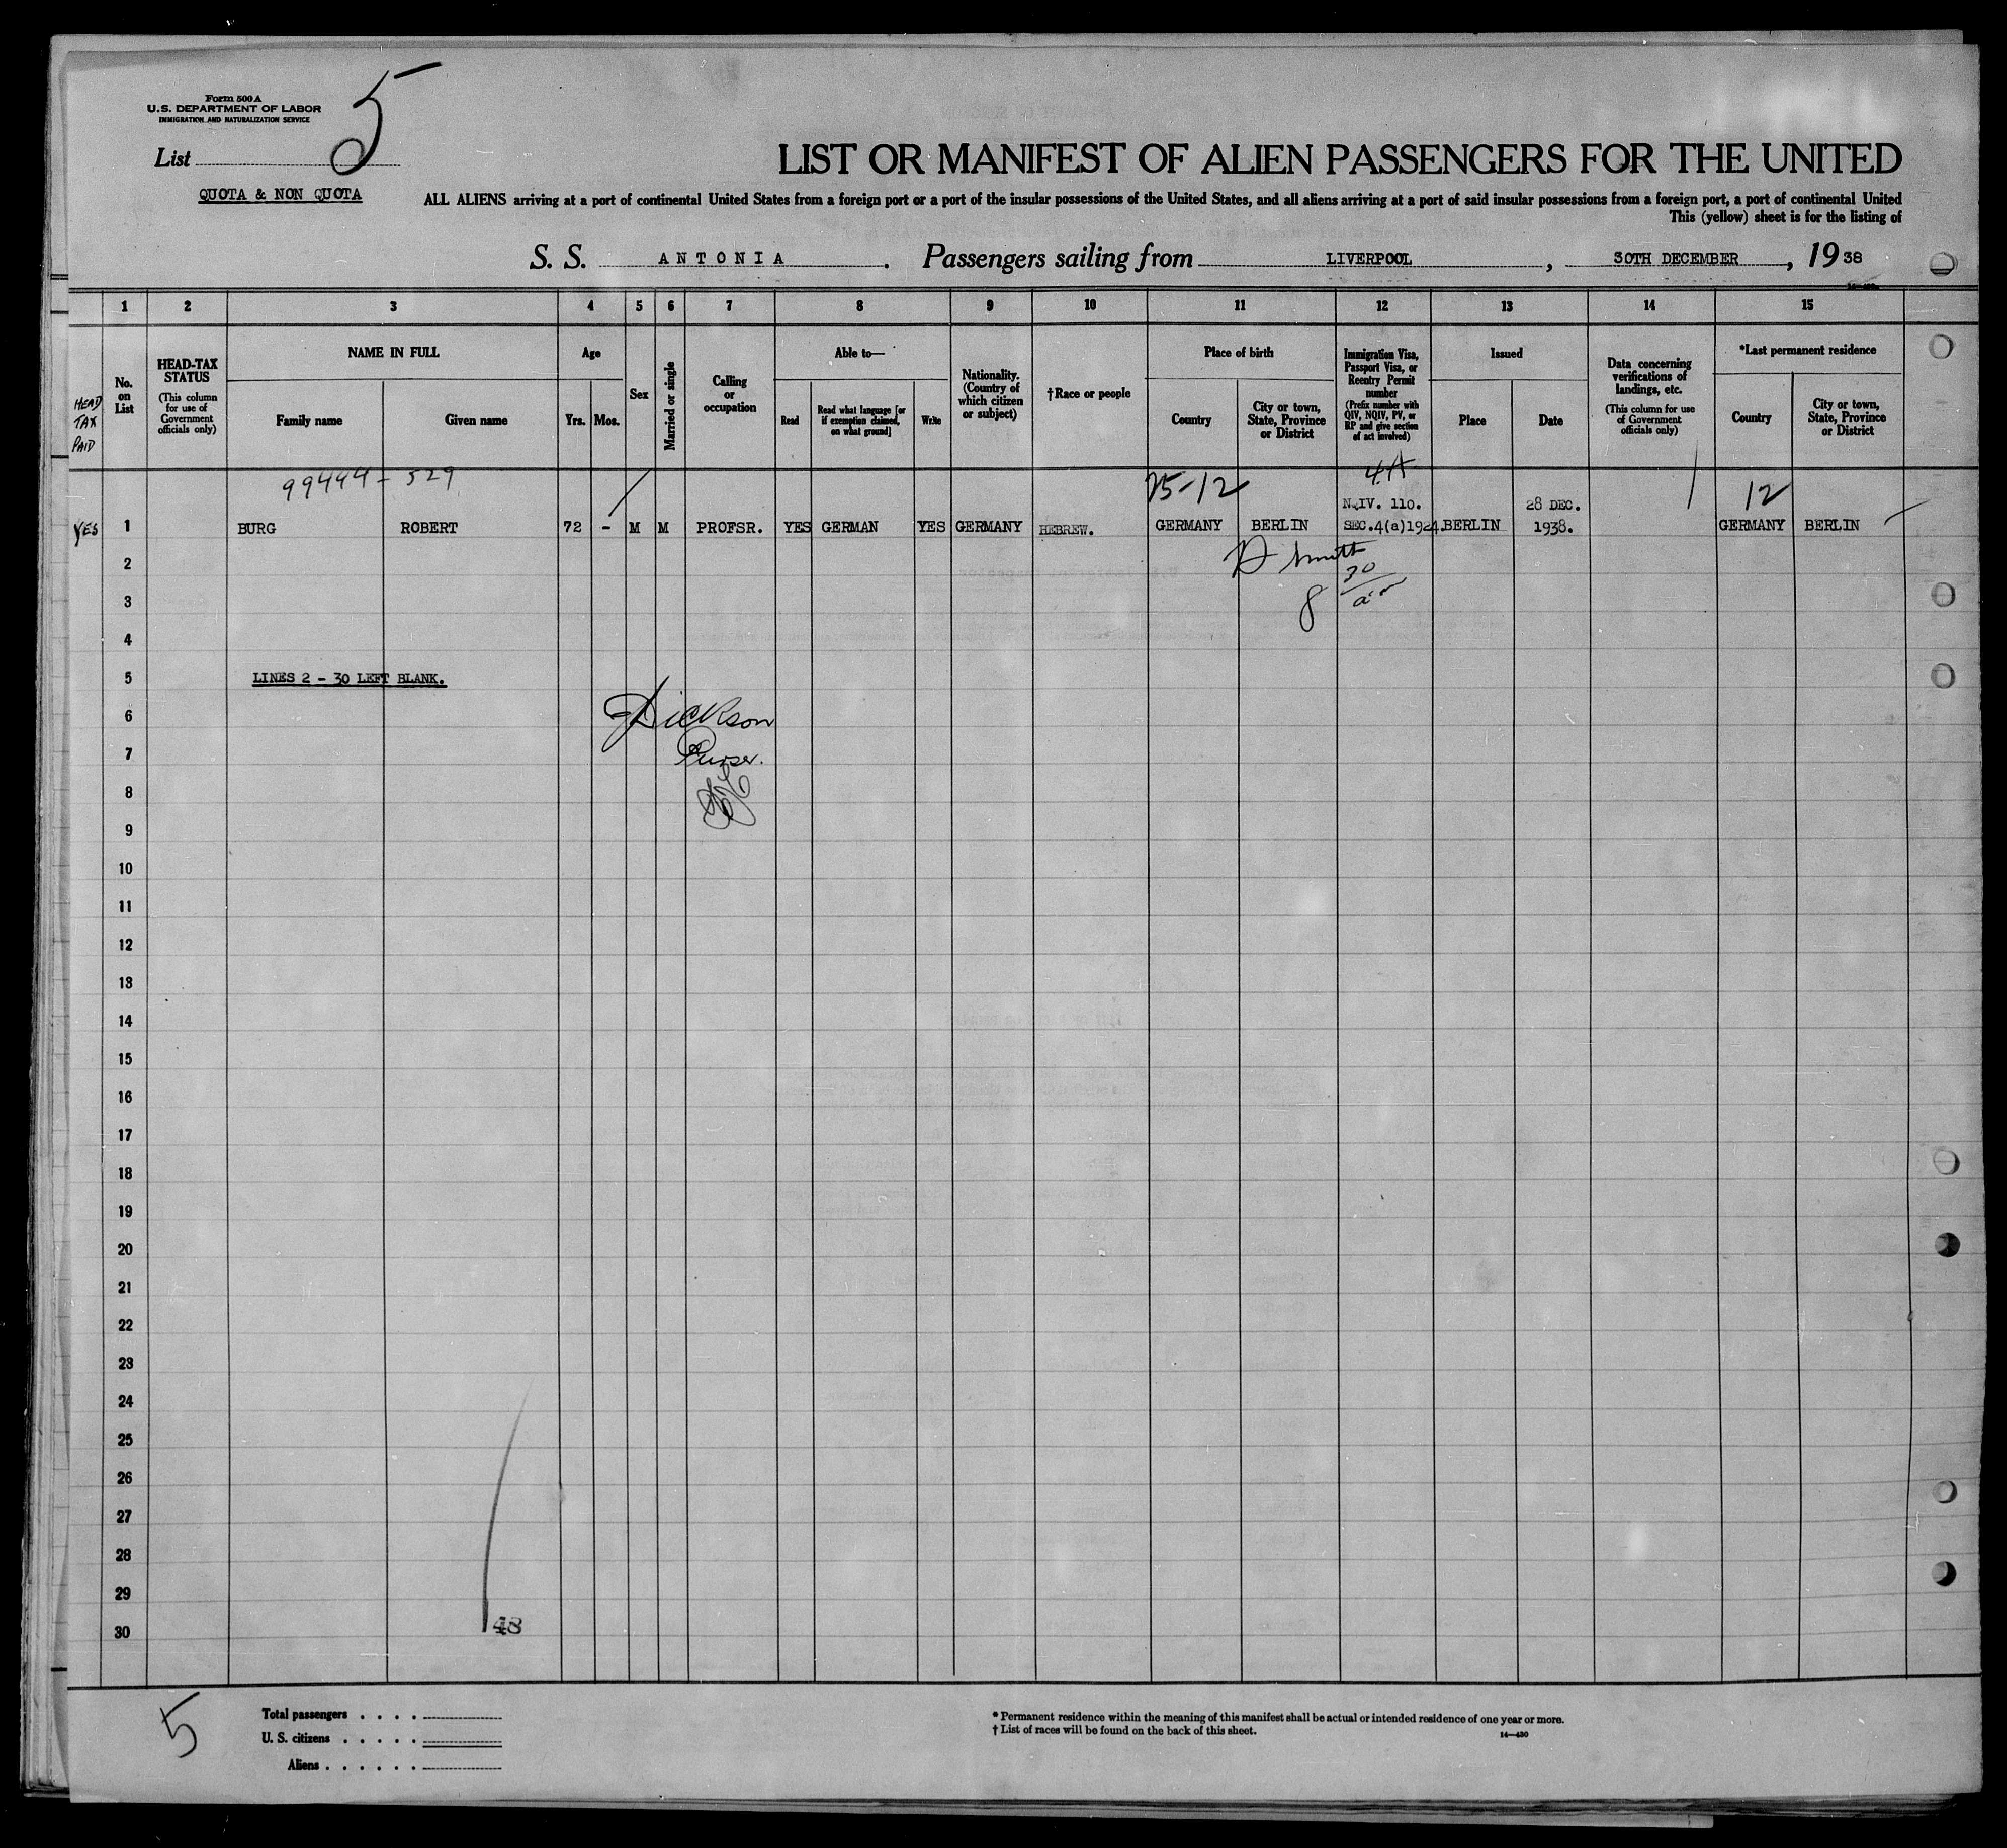 Form 500 A
U.S. DEPARTMENT OF LABOR
IMMIGRATION AND NATURALIZATION SERVICE
List 5
QUOTA & NON QUOTA
LIST OR MANIFEST OF ALIEN PASSENGERS FOR THE UNITED
ALL ALIENS arriving at a port of continental United States from a foreign port or a port of the insular possessions of the United States, and all aliens arriving at a port of said insular possessions from a foreign port, a port of continental United
This (yellow) sheet is for the listing of
S. S. ANTONIA. Passengers sailing from LIVERPOOL, 30TH DECEMBER, 1938
1 2 3 4 5 6 7 8 9 10 11 12 13 14 15
HEAD TAX PAID
No. on List
HEAD-TAX STATUS
(This column for use of Government officials only)
NAME IN FULL
Family name Given name
Age
Yrs. Mos.
Sex
Married or single
Calling or occupation
Able to—
Read
Read what language [or if exemption claimed, on what ground]
Write
Nationality. (Country of which citizen or subject)
†Race or people
Place of birth
Country
City or town, State, Province or District
Immigration Visa, Passport Visa, or Reentry Permit number
(Prefix number with QIV, NQIV, PV, or RP and give section of act involved)
Issued
Place Date
Data concerning verifications of landings, etc.
(This column for use of Government officials only)
*Last permanent residence
Country
City or town, State, Province or District
99494 - 529 25-12 4A 12
NQIV. 110. 28 DEC.
YES 1 BURG ROBERT 72 - M M PROFSR. YES GERMAN YES GERMANY HEBREW. GERMANY BERLIN SEC.4(a)1924. BERLIN 1938. GERMANY BERLIN
2 Smith
30
3 8
4
5 LINES 2 - 30 LEFT BLANK.
6 Dickson
7 Purser.
8
9
10
11
12
13
14
15
16
17
18
19
20
21
22
23
24
25
26
27
28
29
30 48
5
Total passengers . . . .
U. S. citizens . . . . .
Aliens . . . . . .
* Permanent residence within the meaning of this manifest shall be actual or intended residence of one year or more.
† List of races will be found on the back of this sheet.
14—430